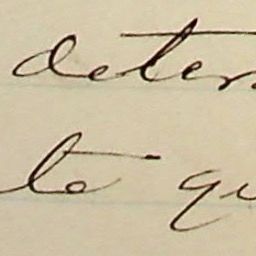 deter
te qu